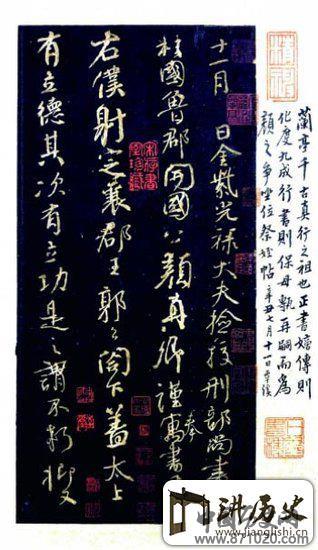 蘭亭千古真行之祖也正書嫡傳則
化度九成行書則保母甎再嗣而為
顏之爭坐位祭姪帖 七月十一日
十一月 日金紫光祿大夫檢校刑部尚書
柱國魯郡開國公顏真卿謹奉寓書
右僕射定襄郡王郭公閣下蓋太上
有立德其次有立功是之謂不朽抑又
讲历史
www.jianglishi.cn
www.871020.com